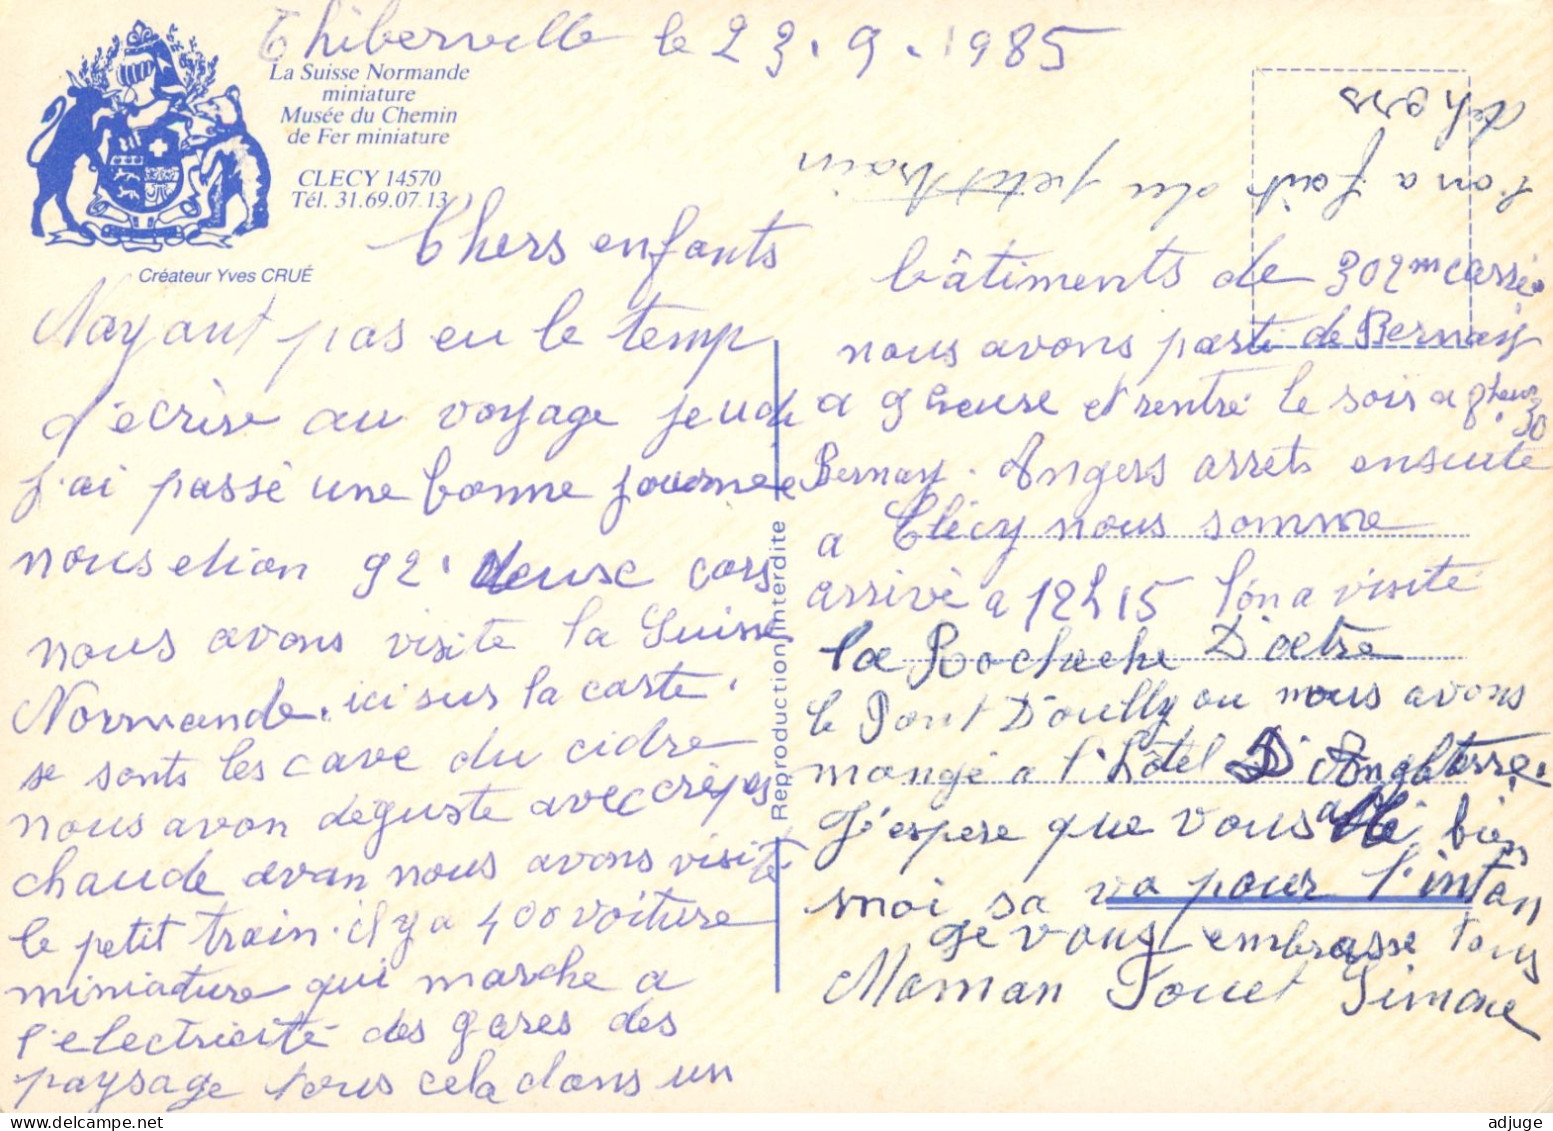 Thiberville le 23.9.1985
La Suisse Normande
miniature
Musée du Chemin
de Fer miniature
CLECY 14570
Tél. 31.69.07.13
Créateur Yves CRUÉ
Chers enfants
Nayant pas eu le temp
d'écrire au voyage jeudi
j'ai passé une bonne journee
nous etion 92. deux cars
nous avons visite la Suisse
Normande. ici sur la carte.
se sonts les cave du cidre
nous avon deguste avec crêpes
chaude avan nous avons visité
le petit train. il y a 400 voiture
miniature qui marche a
l'electricité des gares des
paysage tous cela dans un
Reproduction interdite
bâtiments de 302m carré.
nous avons parti de Bernay
a 9 heure et rentré le soir a 8 heures 30
Bernay. Angers arrets ensuite
a Clécy nous somme
arrivé a 12h15 l'on a visite
la Rocheche D'oetre
le Pont D'ouilly ou nous avons
mangé a l'hôtel D'Angleterre.
J'espere que vous allé bien
moi sa va pour l'intan
Je vous embrasse tous
Maman Simone
l'on a fait du petit train
dehors
adjuge